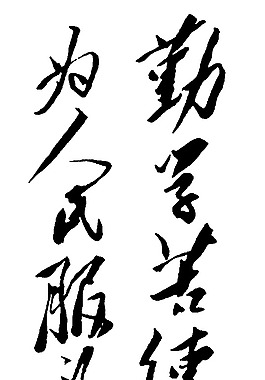 勤学苦
为人民服